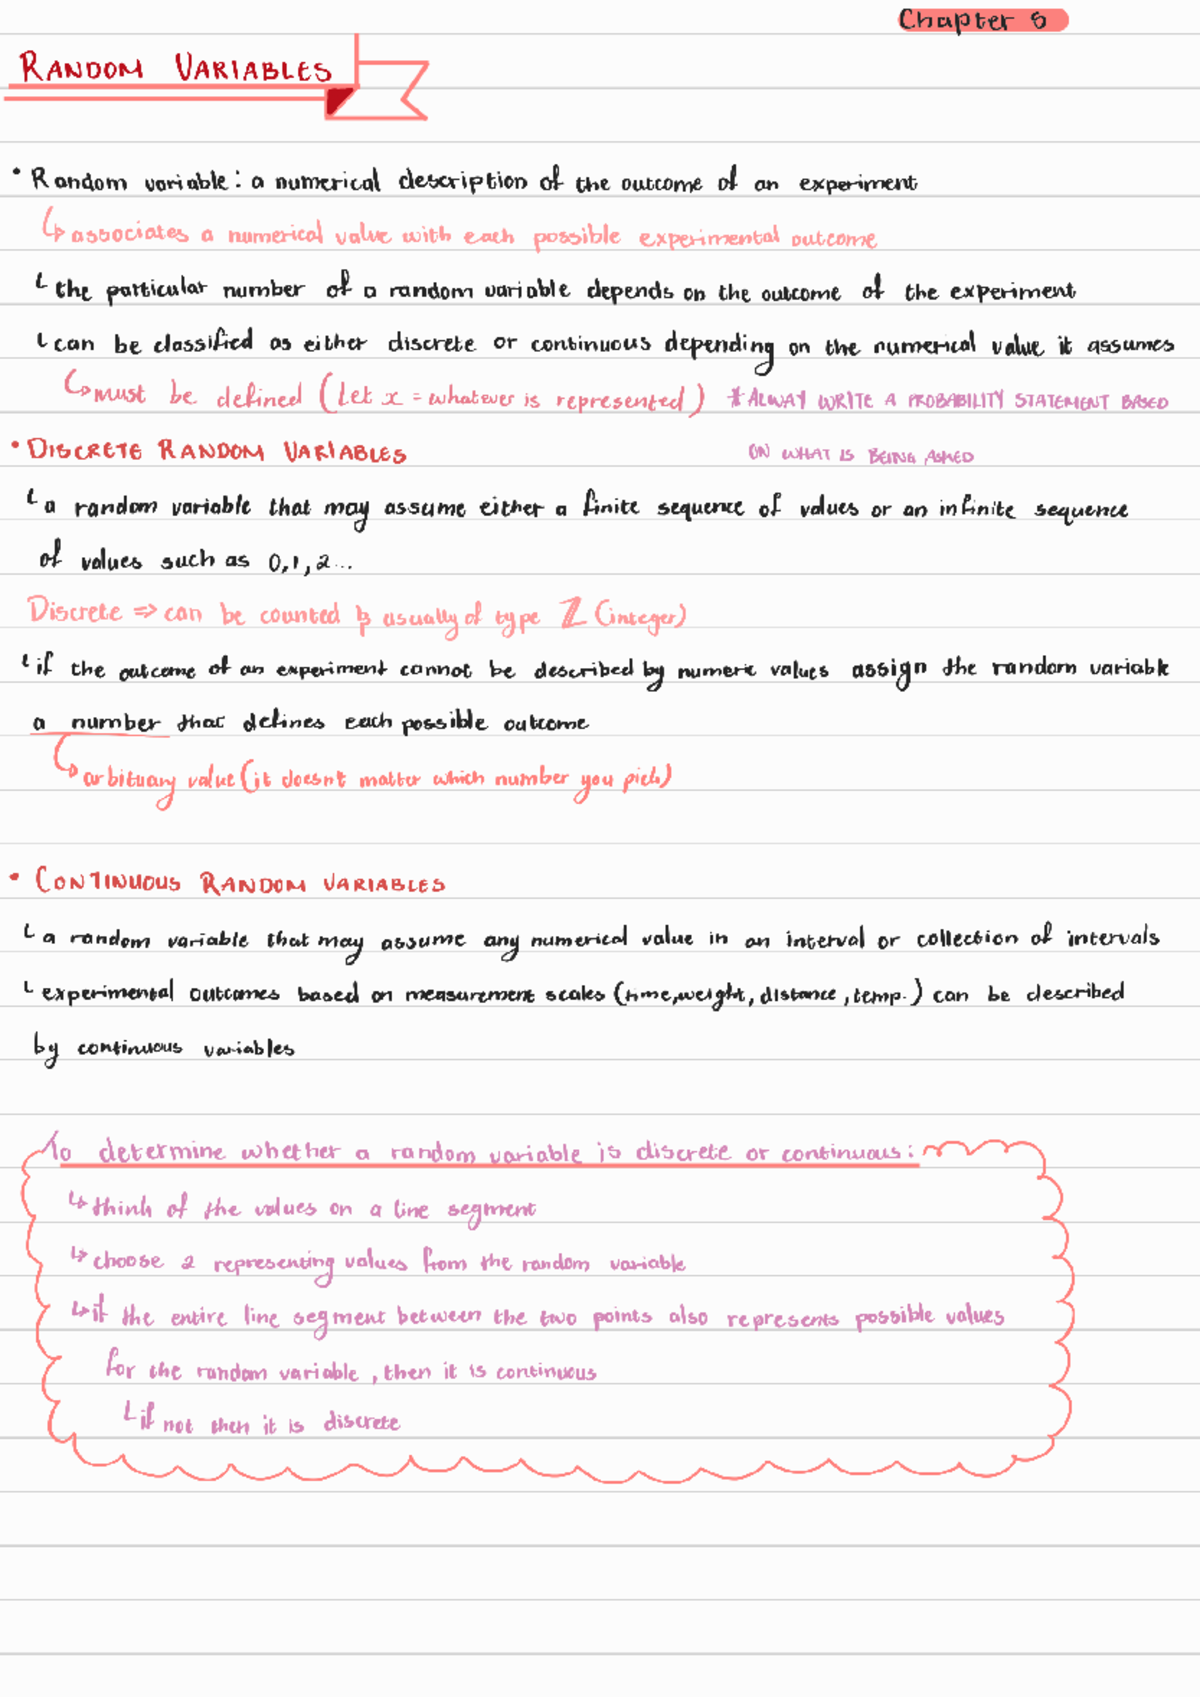 Chapter 5
RANDOM VARIABLES
• Random variable: a numerical description of the outcome of an experiment
↳ associates a numerical value with each possible experimental outcome
└ the particular number of a random variable depends on the outcome of the experiment
└ can be classified as either discrete or continuous depending on the numerical value it assumes
↳ must be defined (Let x = whatever is represented) * ALWAY WRITE A PROBABILITY STATEMENT BASED
ON WHAT IS BEING ASKED
• DISCRETE RANDOM VARIABLES
└ a random variable that may assume either a finite sequence of values or an infinite sequence
of values such as 0,1,2...
Discrete => can be counted & usually of type ℤ (integer)
└ if the outcome of an experiment cannot be described by numeric values assign the random variable
a number that defines each possible outcome
↳ arbituary value (it doesn't matter which number you pick)
• CONTINUOUS RANDOM VARIABLES
└ a random variable that may assume any numerical value in an interval or collection of intervals
└ experimental outcomes based on measurement scales (time, weight, distance, temp.) can be described
by continuous variables
To determine whether a random variable is discrete or continuous:
↳ think of the values on a line segment
↳ choose 2 representing values from the random variable
↳ if the entire line segment between the two points also represents possible values
for the random variable, then it is continuous
└ if not then it is discrete